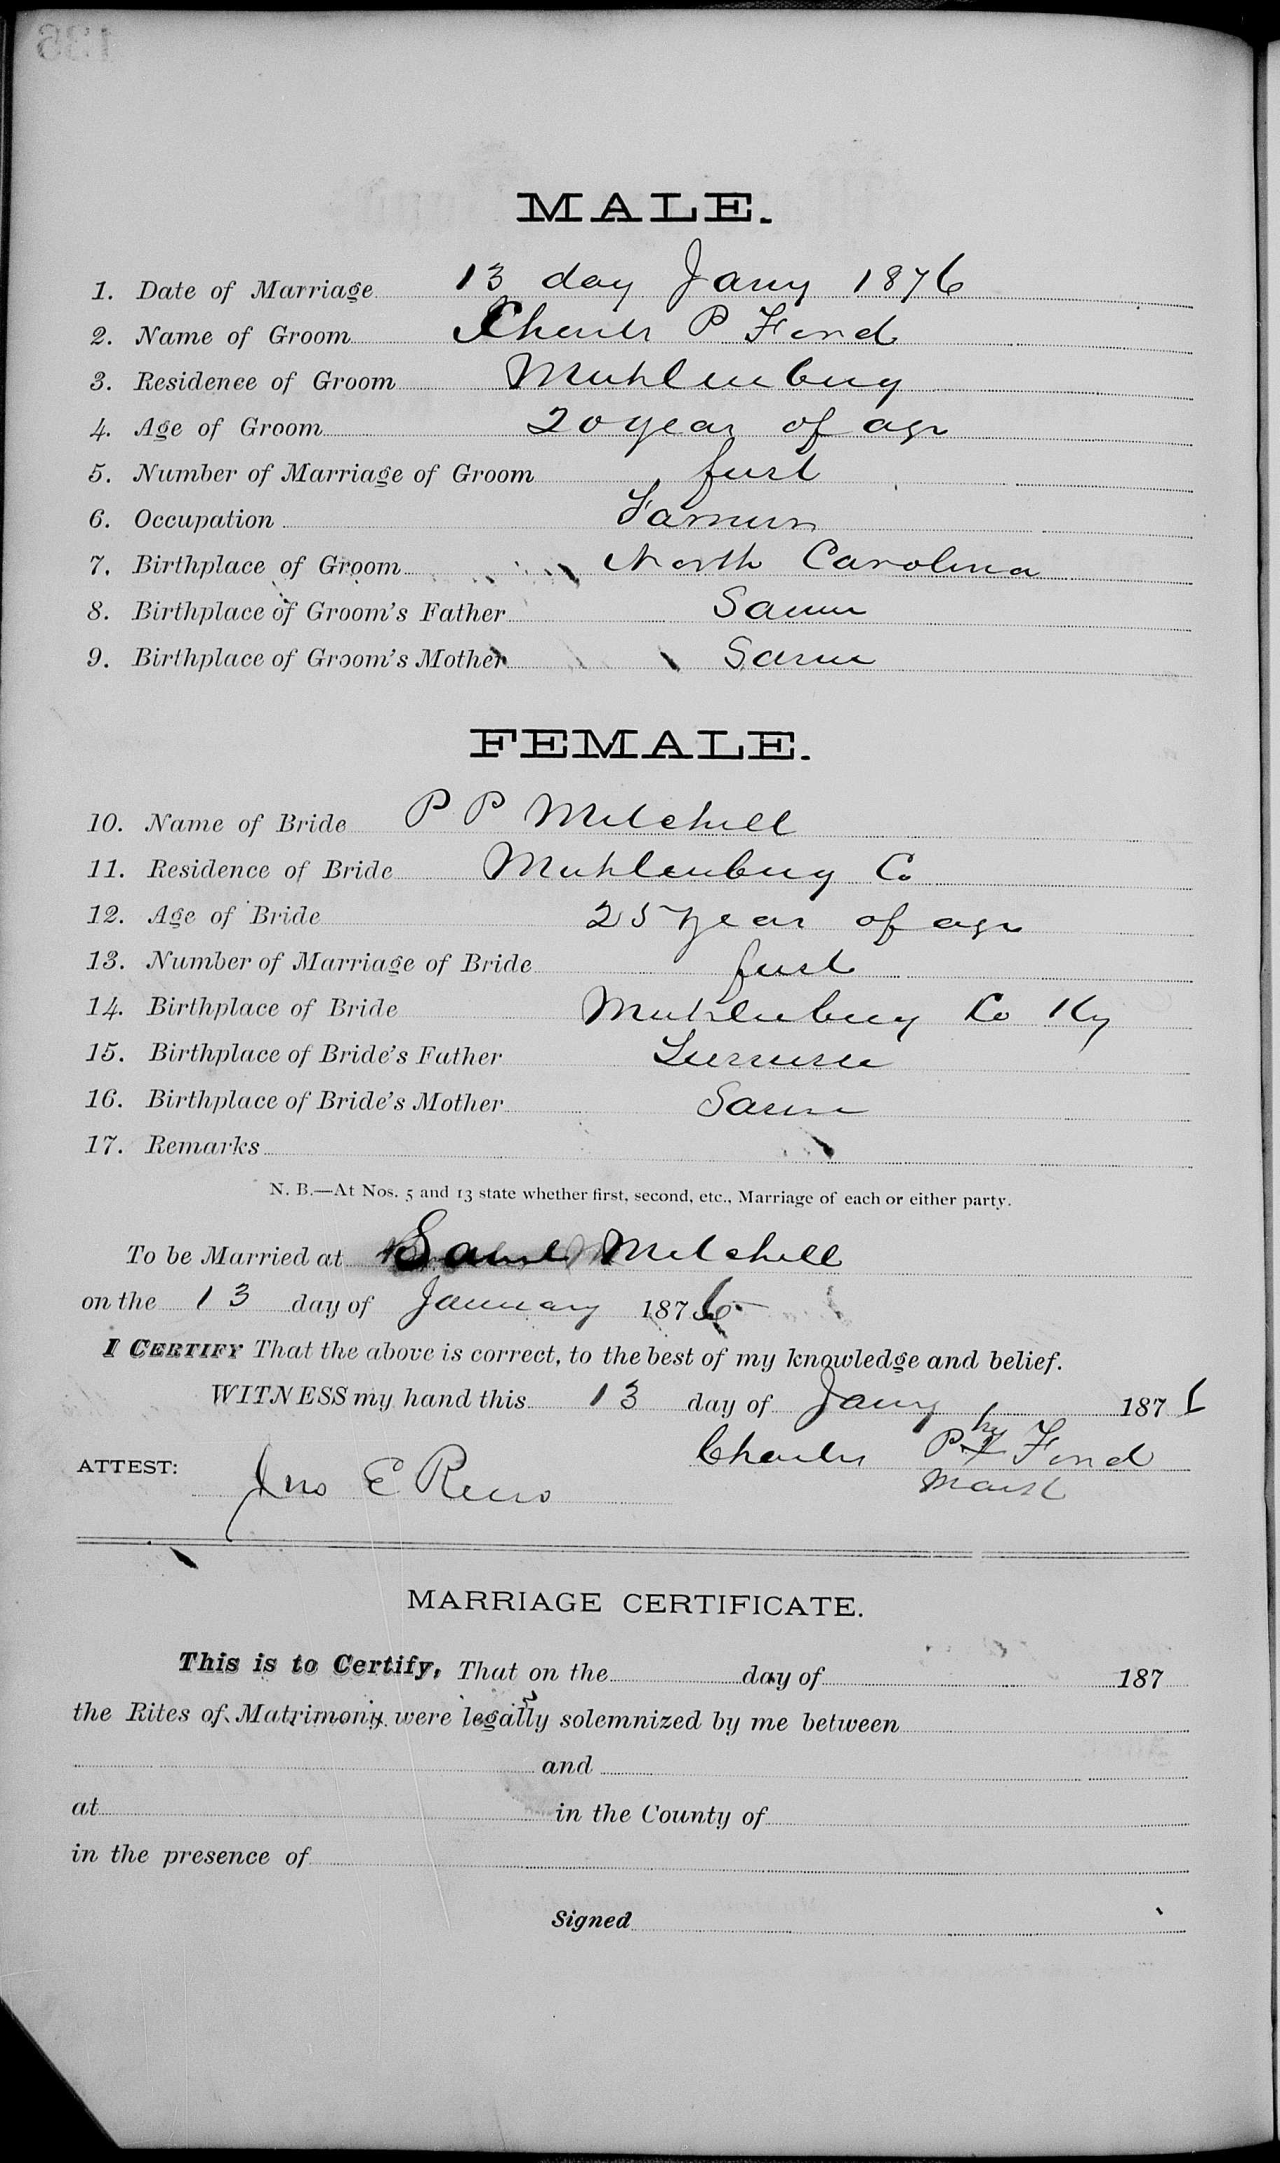 MALE.
1. Date of Marriage 13 day Jany 1876
2. Name of Groom Charles P Ford
3. Residence of Groom Muhlenburg
4. Age of Groom 20 year of age
5. Number of Marriage of Groom first
6. Occupation Farmer
7. Birthplace of Groom North Carolina
8. Birthplace of Groom's Father Same
9. Birthplace of Groom's Mother Same
FEMALE.
10. Name of Bride P P Mitchell
11. Residence of Bride Muhlenburg Co
12. Age of Bride 25 year of age
13. Number of Marriage of Bride first
14. Birthplace of Bride Muhlenburg Co Ky
15. Birthplace of Bride's Father
16. Birthplace of Bride's Mother Same
17. Remarks
N. B.—At Nos. 5 and 13 state whether first, second, etc., Marriage of each or either party.
To be Married at Saml Mitchell
on the 13 day of January 1876
I CERTIFY That the above is correct, to the best of my knowledge and belief.
WITNESS my hand this 13 day of Jany 1876
his
Charles P X Ford
mark
ATTEST: Jno E Reno
MARRIAGE CERTIFICATE.
This is to Certify, That on the day of 187
the Rites of Matrimony were legally solemnized by me between
and
at in the County of
in the presence of
Signed